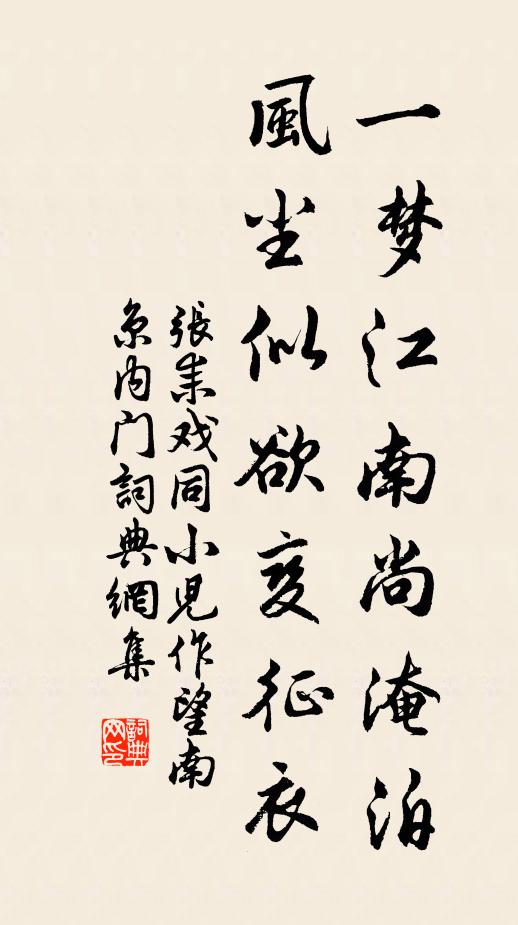 一梦江南尚淹泊
風尘似欲变征衣
張耒戏同小児作望南
京内门詞典網集
詞典
网印